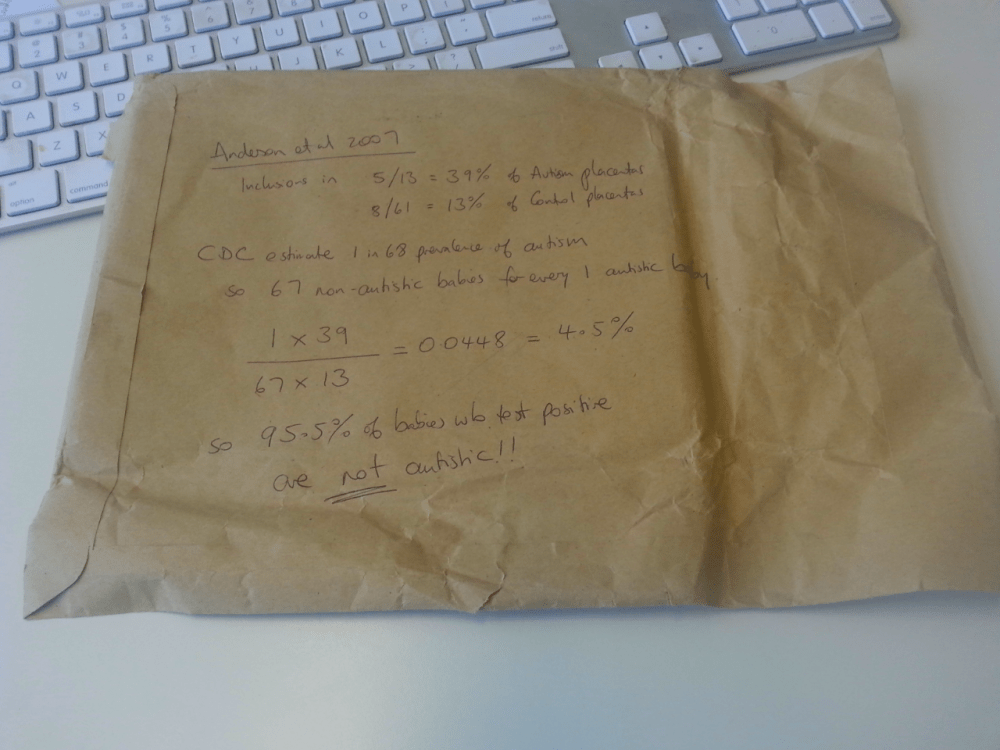 Anderson et al 2007
Inclusions in 5/13 = 39% of Autism placentas
8/61 = 13% of Control placentas
CDC estimate 1 in 68 prevalence of autism
so 67 non-autistic babies for every 1 autistic baby
1 x 39
67 x 13
= 0.0448 = 4.5%
so 95.5% of babies who test positive
are not autistic!!
return
shift
option
command
Q W E R T Y U I O P
A S D J K L
Z X